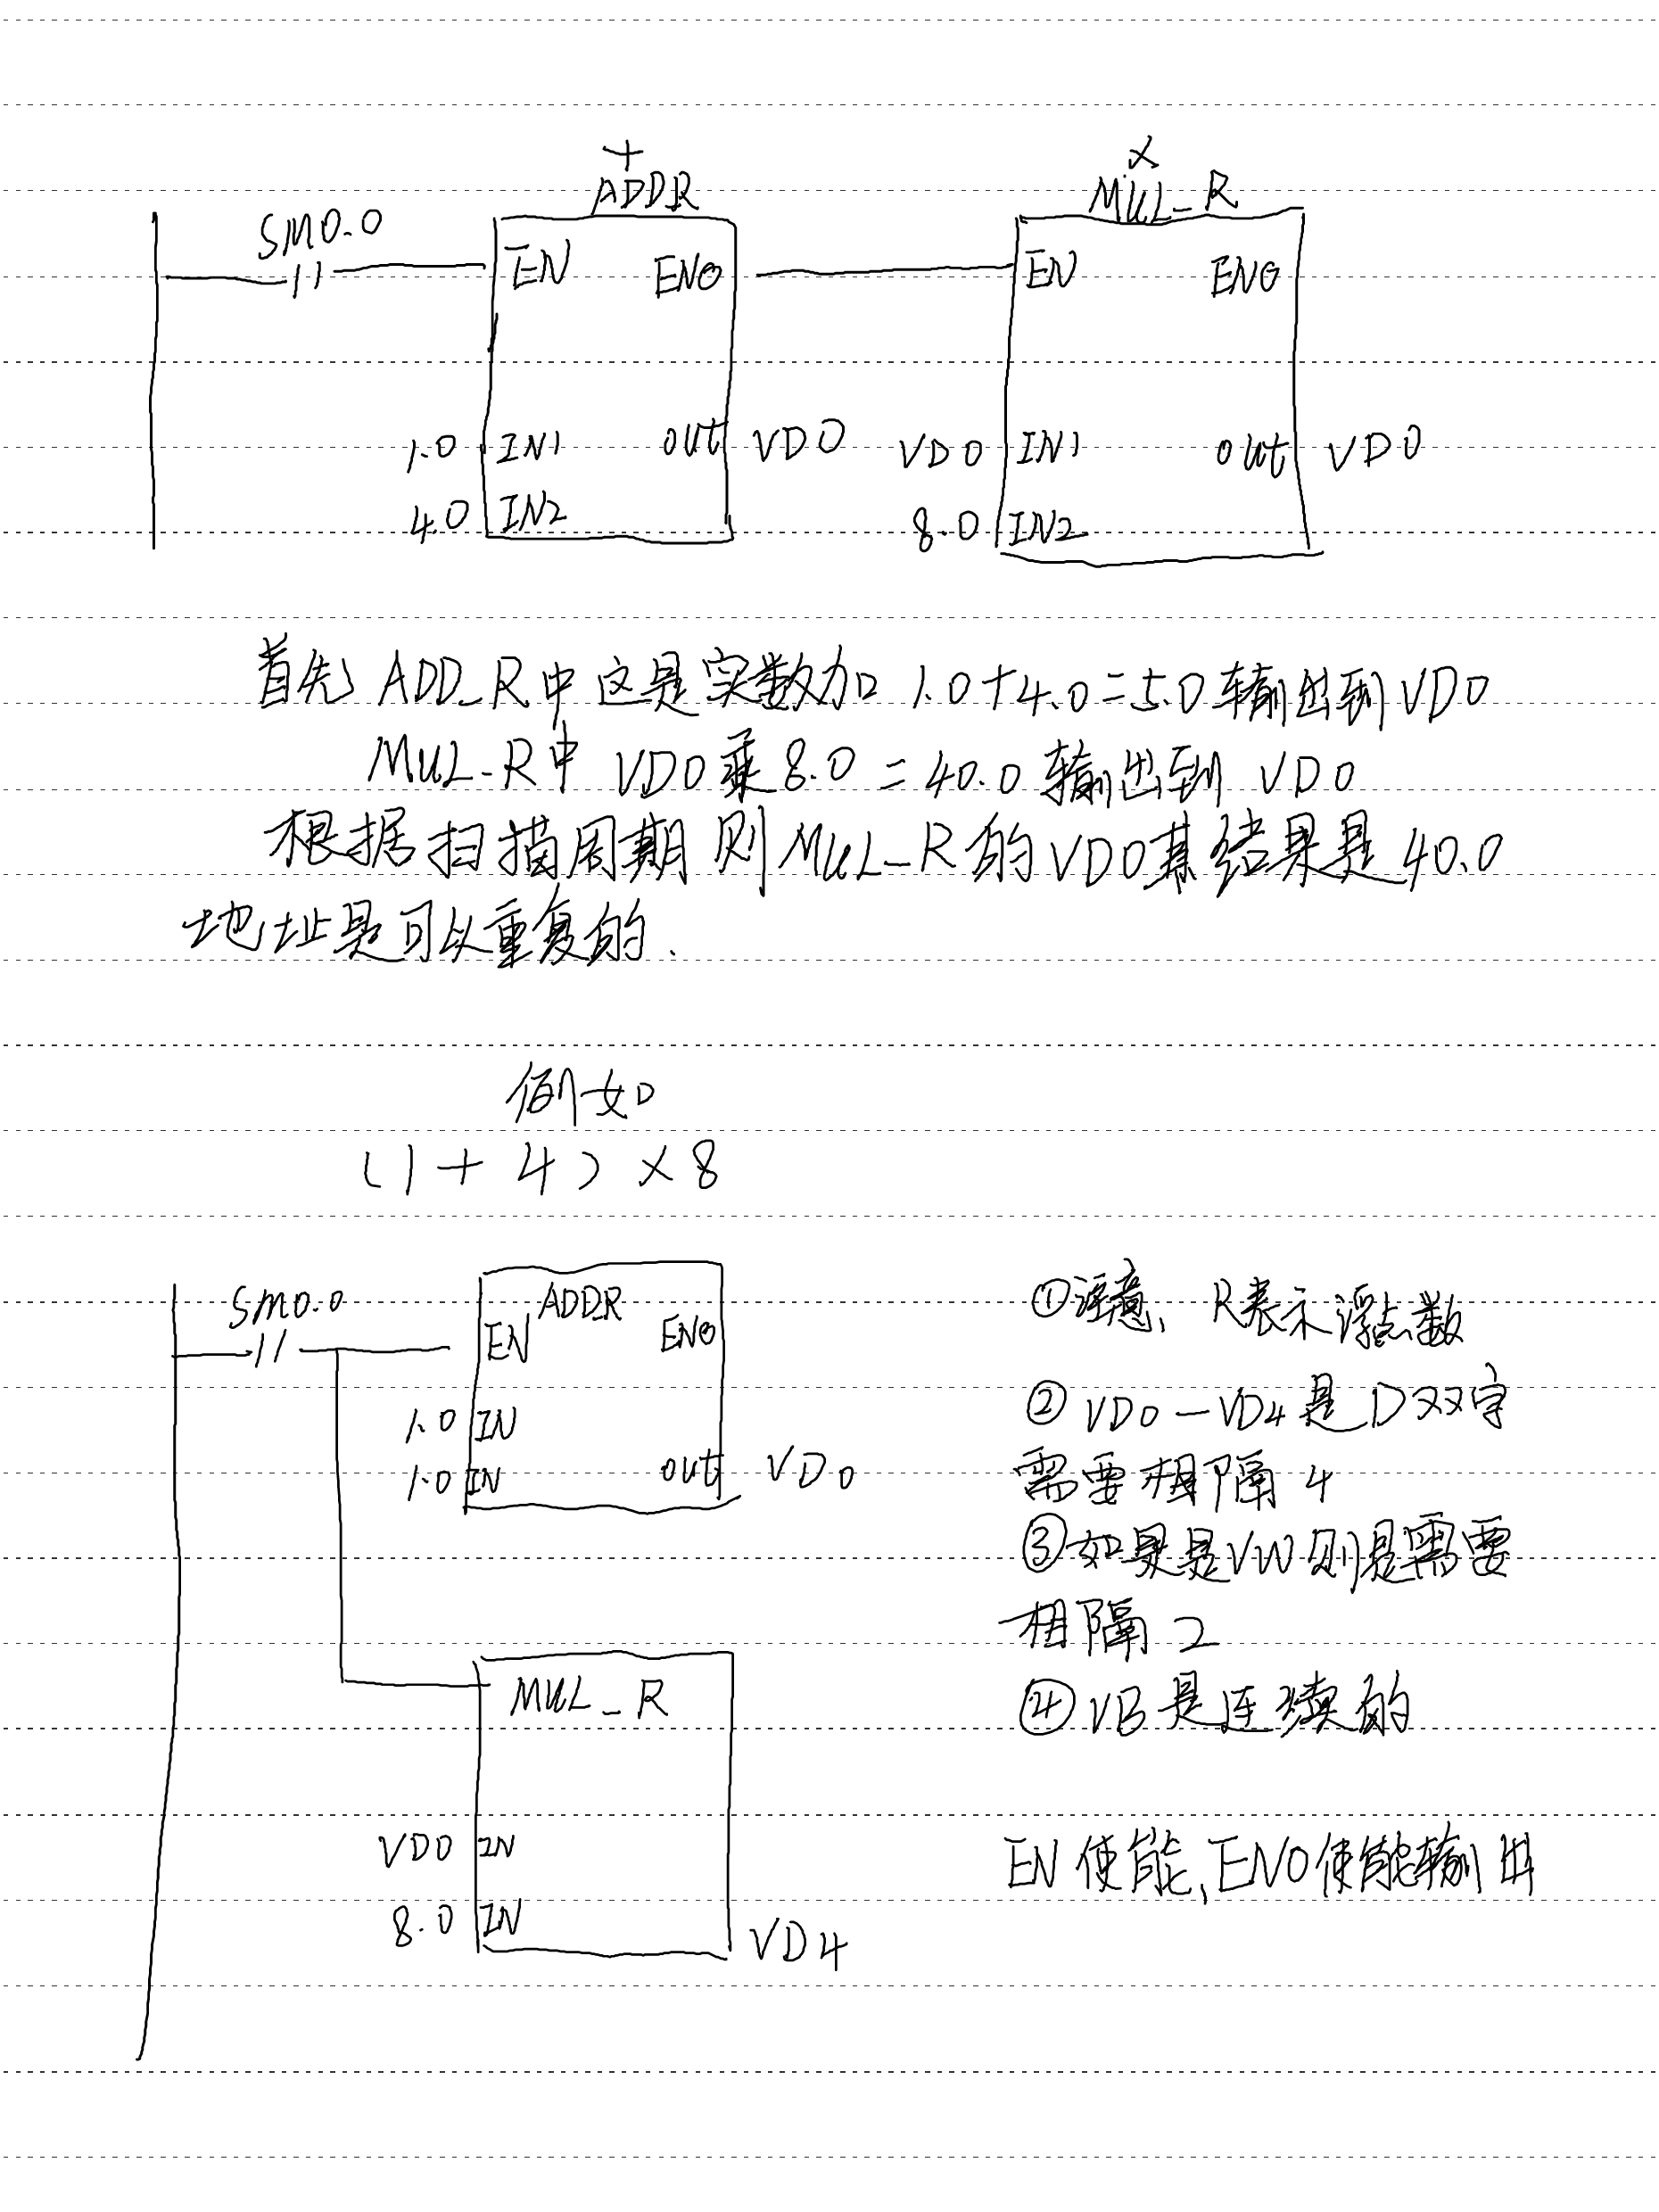 + ×
ADDR MUL_R
SM0.0
EN ENO EN ENO
1.0 IN1 out VD0 VD0 IN1 out VD0
4.0 IN2 8.0 IN2
首先 ADD_R中 这是实数加 1.0+4.0=5.0 输出到VD0
MUL_R中 VD0乘8.0 = 40.0 输出到 VD0
根据扫描周期 则 MUL_R的VD0其结果是 40.0
地址是可以重复的.
例如
(1+4)×8
SM0.0 ADDR
EN ENO
1.0 IN
1.0 IN out VD0
MUL_R
VD0 IN
8.0 IN VD4
①注意、R表示浮点数
②VD0—VD4是D双字
需要相隔 4
③如果是VW则是需要
相隔 2
④VB是连续的
EN 使能、ENO使能输出